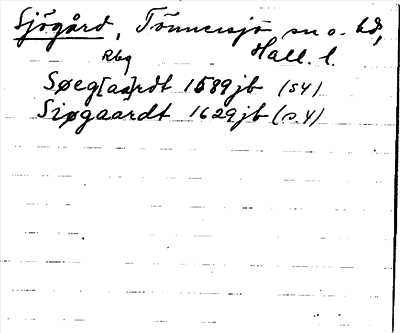 Sjögård, Tönnersjö sn o. hd,
Rbg Hall. l.
Søeg[aa]rdt 1589 jb (s4)
Siøgaardt 1629 jb (s.4)